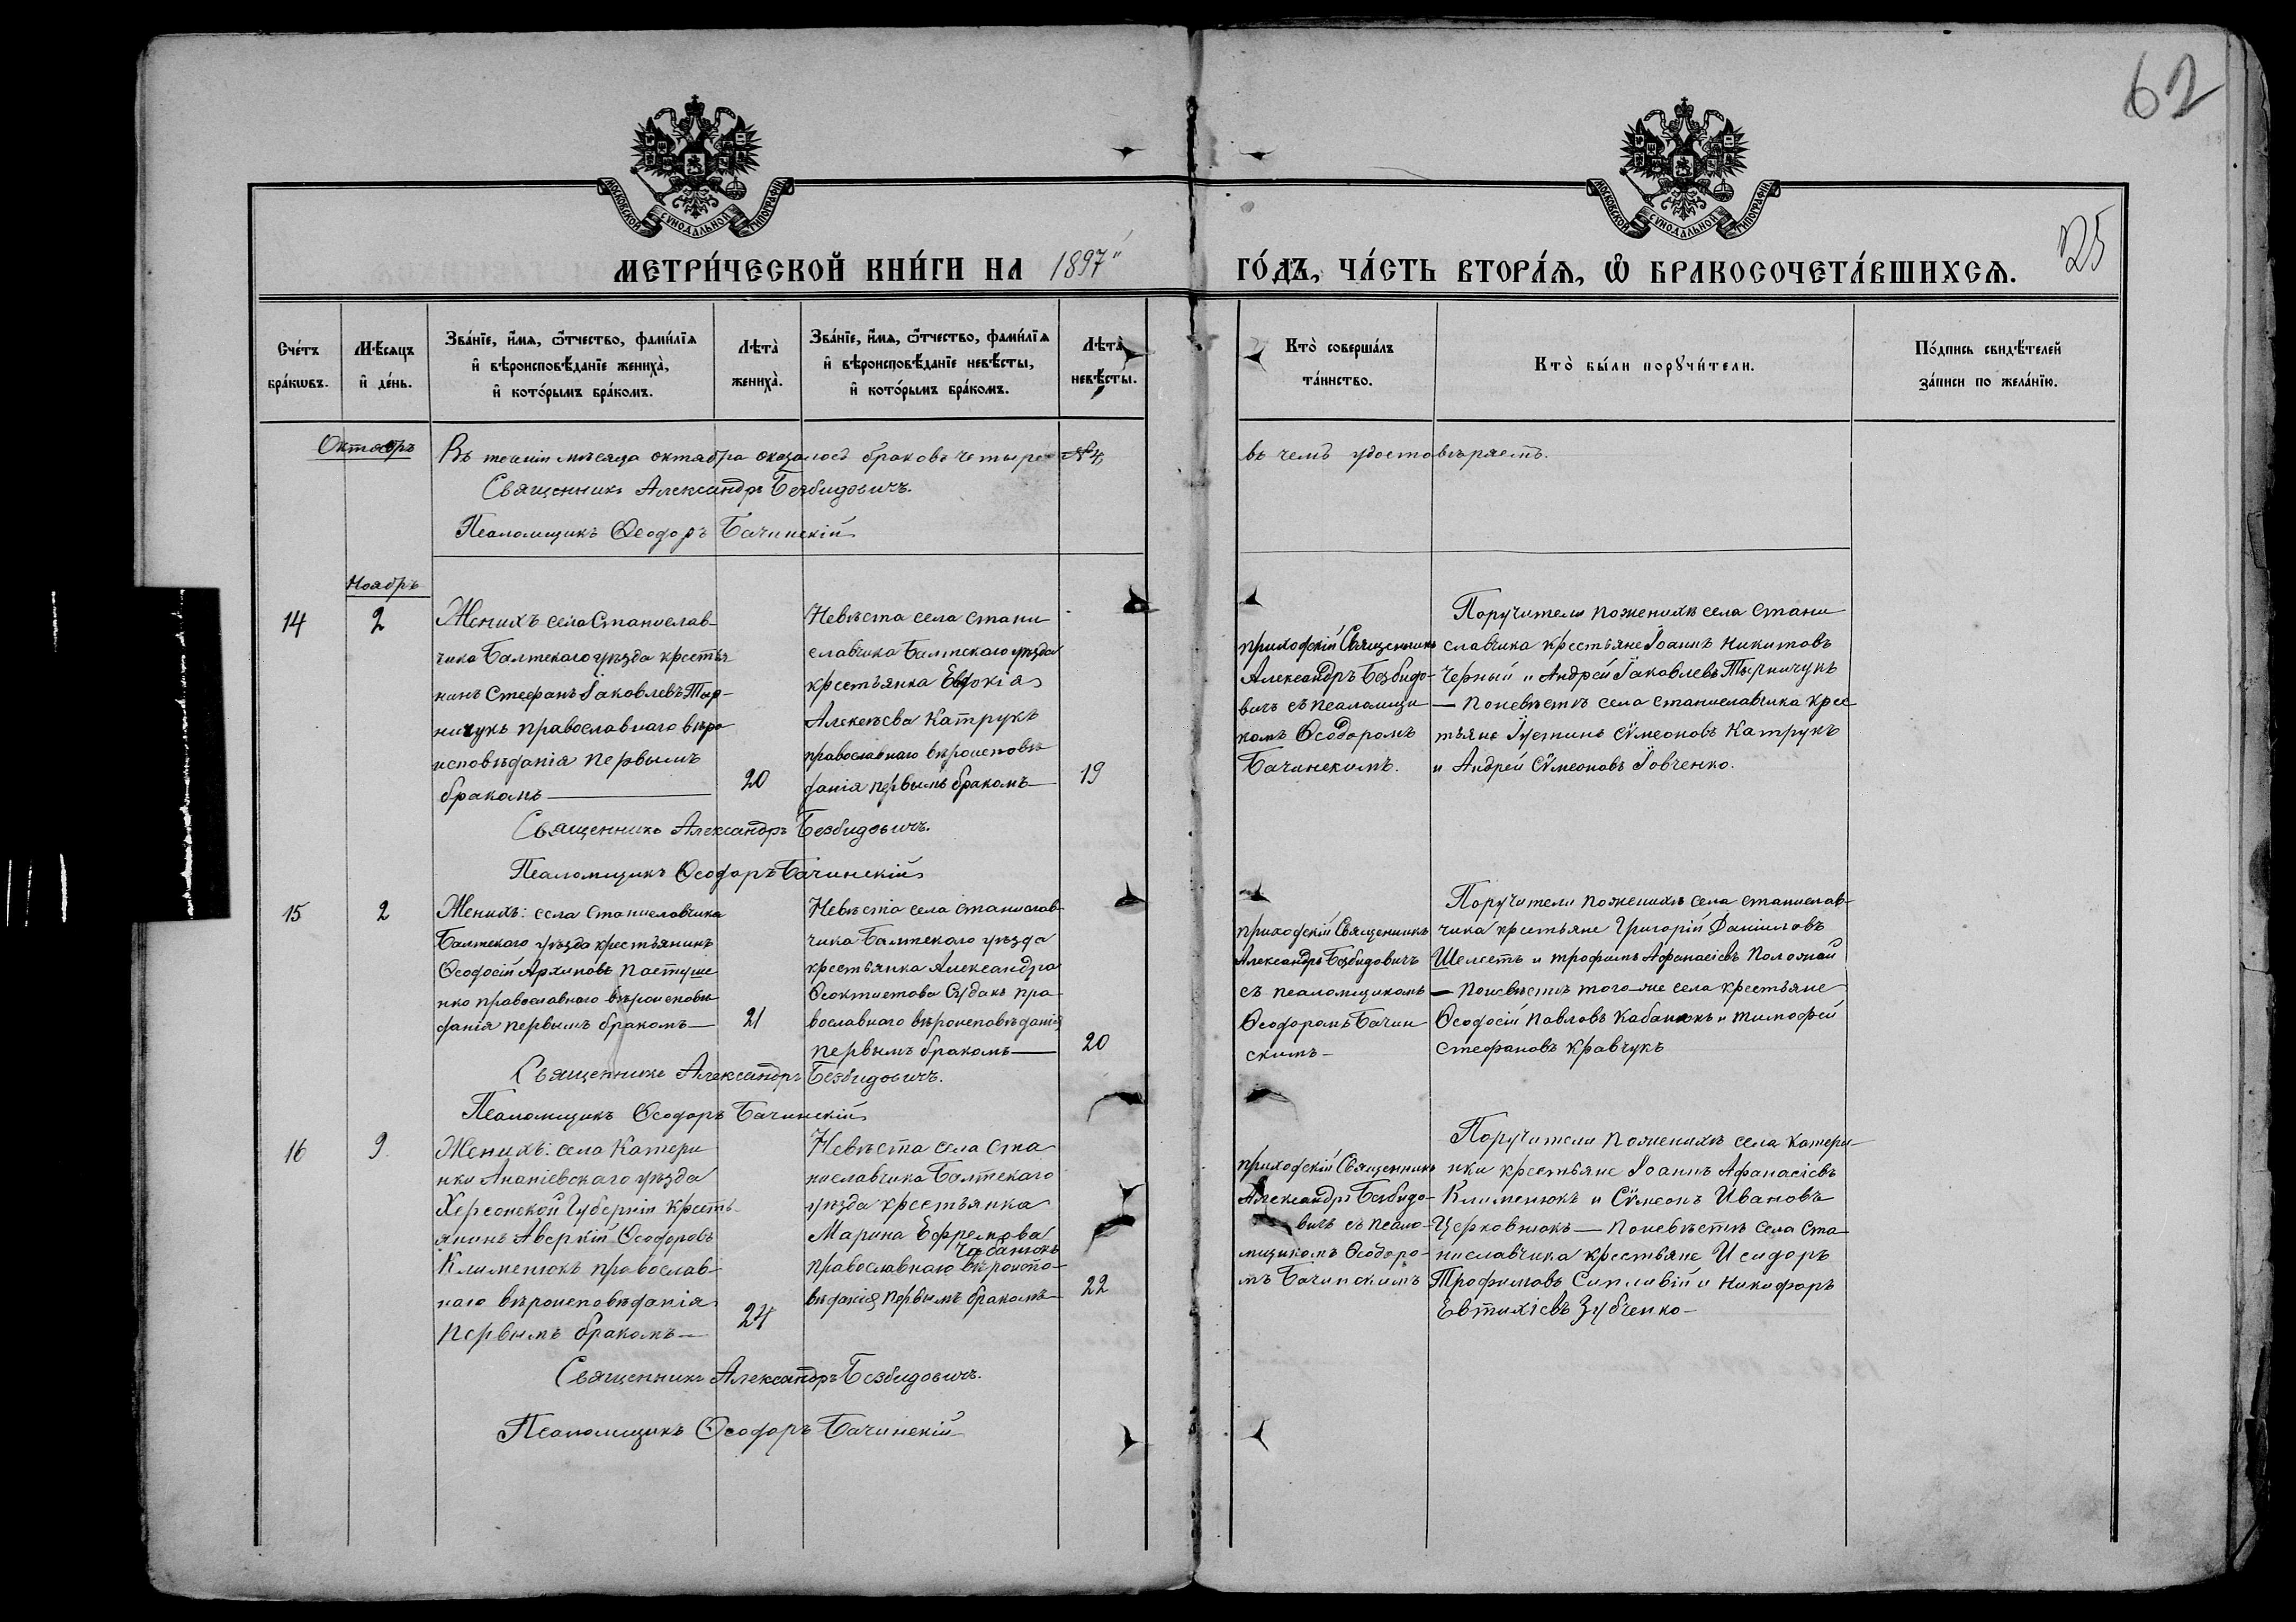 62
МОСКОВСКОЙ СѴНОДАЛЬНОЙ ТИПОГРАФІИ
МОСКОВСКОЙ СѴНОДАЛЬНОЙ ТИПОГРАФІИ
МЕТРИ́ЧЕСКОЙ КНИ́ГИ НА 1897 ГО́ДЪ, ЧА́СТЬ ВТОРА́Ѧ, Ѽ БРАКОСОЧЕТА́ВШИХСѦ.
25
Сче́тъ бра́кѡвъ.
Мѣ́сѧцъ и҆ де́нь.
Зва́нїе, и҆́мѧ, ѻ҆́тчество, фами́лїѧ и҆ вѣроисповѣ́данїе жениха̀, и҆ кото́рымъ бра́комъ.
Лѣта̀ жениха̀.
Зва́нїе, и҆́мѧ, ѻ҆́тчество, фами́лїѧ и҆ вѣроисповѣ́данїе невѣ́сты, и҆ кото́рымъ бра́комъ.
Лѣта̀ невѣ́сты.
Кто̀ соверша́лъ та́инство.
Кто̀ бы́ли порꙋчи́тели.
По́дпись свидѣ́телей за́писи по жела́нїю.
Октябрь
Въ теченіи мѣсяца октября оказалось браковъ четыре № 4 въ чемъ удостовѣряетъ.
Священникъ Александръ Безбидовичъ.
Псаломщикъ Ѳеодоръ Бачинскій
Ноябрь
14
2
Женихъ села Станислав-
чика Балтскаго уѣзда крестья
нинъ Стефанъ Іаковлевъ Тыр-
ничукъ православнаго вѣро
исповѣданія первымъ
бракомъ
20
Невѣста села Стани
славчика Балтскаго уѣзда
крестьянка Евдокія
Алексѣева Катрукъ
православнаго вѣроисповѣ
данія первымъ бракомъ
19
приходскій Священникъ
Александръ Безбидо-
вичъ съ псаломщи
комъ Ѳеодоромъ
Бачинскимъ.
Поручители по женихѣ села Стани
славчика крестьяне Іоаннъ Никитовъ
Черный и Андрей Іаковлевъ Тырничукъ
— По невѣстѣ села Станиславчика крес
тьяне Іустинъ Сѵмеоновъ Катрукъ
и Андрей Сѵмеоновъ Іовченко.
Священникъ Александръ Безбидовичъ.
Псаломщикъ Ѳеодоръ Бачинскій
15
2
Женихъ: села Станиславчика
Балтскаго уѣзда крестьянинъ
Ѳеодосій Архиповъ Пастуше
нко православнаго вѣроисповѣ
данія первымъ бракомъ —
21
Невѣста села Станислав-
чика Балтскаго уѣзда
крестьянка Александра
Ѳеоктистова Судакъ пра-
вославнаго вѣроисповѣданія
первымъ бракомъ —
20
приходскій Священникъ
Александръ Безбидовичъ
съ псаломщикомъ
Ѳеодоромъ Бачин
скимъ —
Поручители по женихѣ села Станислав-
чика крестьяне Григорій Даніиловъ
Шелестъ и Трофимъ Афанасіевъ
— По невѣстѣ того-же села крестьяне
Ѳеодосій Павловъ Кабанюкъ и Тимофей
Стефановъ Кравчукъ
Священникъ Александръ Безбидовичъ.
Псаломщикъ Ѳеодоръ Бачинскій
16
9
Женихъ: села Катери
нки Ананіевскаго уѣзда
Херсонской Губерніи кресть-
янинъ Аверкій Ѳеодоровъ
Клименюкъ православ-
наго вѣроисповѣданія
первымъ бракомъ —
24
Невѣста села Ста
ниславчика Балтскаго
уѣзда крестьянка
Марина Ефремова
Чабанюкъ
православнаго вѣроиспо-
вѣданія первымъ бракомъ
22
приходскій Священникъ
Александръ Безбидо-
вичъ съ псало-
мщикомъ Ѳеодоро-
мъ Бачинскимъ
Поручители по женихѣ села Катери-
нки крестьяне Іоаннъ Афанасіевъ
Клименюкъ и Сѵмеонъ Ивановъ
Церковнюкъ — По невѣстѣ села Ста-
ниславчика крестьяне Исидоръ
Трофимовъ Сипливій и Никифоръ
Евтихіевъ Зубченко —
Священникъ Александръ Безбидовичъ.
Псаломщикъ Ѳеодоръ Бачинскій